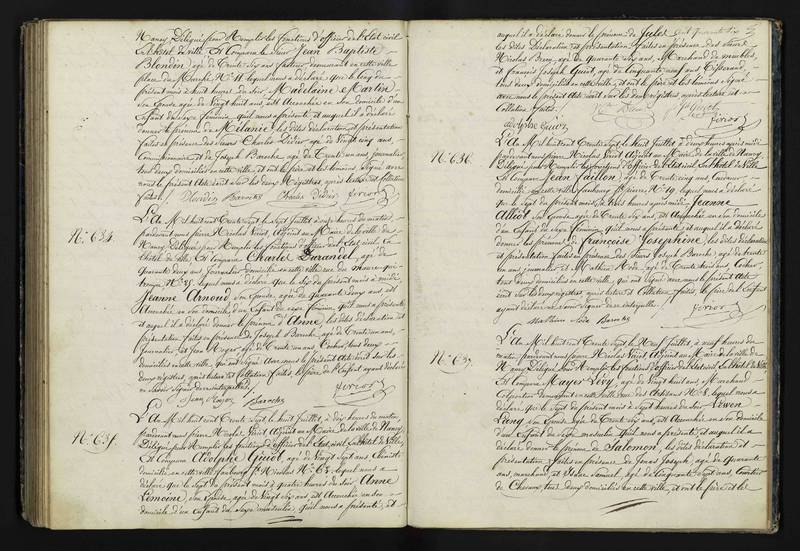 Nancy, Délégué pour Remplir les fonctions d'officier de l'Etat civil
Est Comparu le Sieur Jean Baptiste
Blondin, agé de Trente six ans demeurant en cette ville
place du Marché N.º lequel nous a déclaré que le cinq du
présent mois à huit heures du soir Madelaine Martin
Son Epouse agée de Vingt huit ans, est Accouchée en son domicile d'un
Enfant du sexe féminin, qu'il nous a présenté et auquel il a déclaré
donner le prénom de Mélanie, les dites déclaration et présentation
faites en présence des Sieurs Charles Didier agé de Vingt cinq ans,
Commissionnaire et de Joseph Baroche, agé de Trente un ans journalier
tous deux domiciliés en cette ville, et ont le père et les témoins signé avec
nous le présent acte écrit sur les deux Registres, après lecture et collation
faites. Blondin Baroche Charles Didier
N.º 634.
L'An Mil huit cent Trente Sept le Sept Juillet à onze heures du matin,
pardevant nous pierre Nicolas Vériot, Adjoint au Maire de la ville de
Nancy, Délégué pour Remplir les fonctions d'officier de l'Etat civil, En
l'hôtel de Ville, Est Comparu Charles Durandel, agé de
quarante deux ans, Journalier domicilié en cette ville rue du
N.º 35. lequel nous a déclaré que le Six du présent mois à midi
Jeanne Arnoud son Epouse, agée de quarante deux ans est
Accouchée en son domicile d'un Enfant du sexe féminin, qu'il nous a présenté
et auquel il a déclaré donner le prénom d'Anne, les dites déclaration et
présentation faites en présence de Joseph Baroche, agé de Trente un ans,
journalier, et Jean Mayer, agé de Trente un ans Cocher, tous deux
domiciliés en cette ville, qui ont Signé avec nous le présent acte écrit sur les
deux registres, après lecture et Collation faites, le père de l'Enfant ayant déclaré
ne savoir signer de ce interpellé.
Jean Mayer Baroche
N.º 635.
L'An Mil huit cent Trente Sept le huit Juillet, à dix heures du matin,
pardevant nous pierre Nicolas Vériot Adjoint au Maire de la ville de Nancy
Délégué pour Remplir les fonctions d'officier de l'Etat civil, En l'hôtel de Ville,
Est Comparu Adolphe Guiot, agé de Vingt Sept ans
domicilié en cette ville, faubourg S.t Nicolas N.º 63. lequel nous a
déclaré que le Sept du présent mois à quatre heures du soir Anne
Lemoine son Epouse, agée de Vingt Six ans est Accouchée en son
domicile d'un enfant du sexe masculin, qu'il nous a présenté, et
auquel il a déclaré donner le prénom de Jules
les dites Déclaration et présentation faites en présence des Sieurs
Nicolas agé de quarante Six ans, Marchand de meubles,
et françois Joseph Guiot, agé de Cinquante neuf ans
tous deux domiciliés en cette ville, et ont le père et les témoins Signé
avec nous le présent acte écrit sur les deux registres après lecture et
Collation faites.
Adolphe Guiot
N.º 636.
L'An Mil huit cent Trente Sept le huit Juillet à deux heures après midi
pardevant nous pierre Nicolas Vériot Adjoint au Maire de la ville de Nancy,
Délégué pour Remplir les fonctions d'officier de l'Etat civil, En l'hôtel de Ville
Est Comparu Jean Faillon, agé de Trente cinq ans,
domicilié en cette ville faubourg S.t pierre N.º 19 lequel nous a déclaré
que le Sept du présent mois, à trois heures après midi Jeanne
Alliot Son Epouse agée de Trente Six ans, est Accouchée en son domicile
d'un Enfant du sexe féminin qu'il nous a présenté et auquel il a déclaré
donner les prénoms de françoise Josephine, les dites déclaration
et présentation faites en présence des Sieurs Joseph Baroche, agé de trente
un ans journalier et Mathieu agé de Trente ans Cocher,
tous deux domiciliés en cette ville, qui ont Signé avec nous le présent acte
écrit sur les deux registres après lecture et Collation faites, le père de l'Enfant
ayant déclaré ne savoir signer de ce interpellé.
Mathieu Baroche
N.º 637.
L'An Mil huit cent Trente Sept le Neuf Juillet, à neuf heures du
matin, pardevant nous pierre Nicolas Vériot Adjoint au Maire de la ville de
Nancy, Délégué pour Remplir les fonctions d'officier de l'Etat civil, En l'hôtel de Ville
Est Comparu Mayer Lévy, agé de Vingt huit ans, Marchand
Colporteur demeurant en cette ville rue des Artisans N.º 8 lequel nous a
déclaré que le Sept du présent mois à Sept heures du soir
Son Epouse agée de Trente Six ans, est Accouchée, en Son domicile
d'un Enfant du sexe masculin qu'il nous a présenté, et auquel il a
déclaré donner le prénom de Salomon, les dites déclaration et
présentation faites en présence de Jonas Joseph, agé de quarante
ans, marchand, et Isaac Samuel, agé de Cinquante Sept ans, Courtier
de Chevaux, tous deux domiciliés en cette ville, et ont le père et les